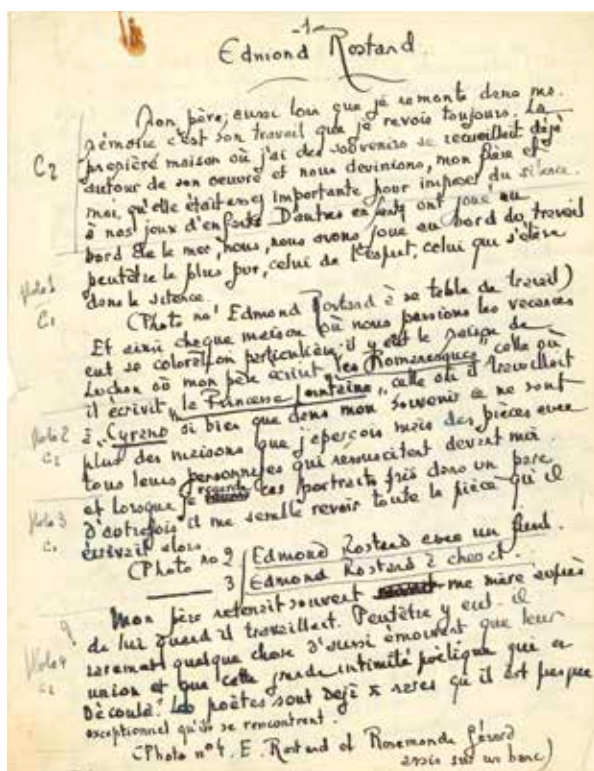 -1-
Edmond Rostand.
Mon père, aussi loin que je remonte dans ma
mémoire c'est son travail que je revois toujours. La
première maison où j'ai des souvenirs se recueillait déjà
autour de son oeuvre et nous devinions, mon frère et
moi, qu'elle était assez importante pour imposer du silence
à nos jeux d'enfants. D'autres enfants ont joué au
bord de la mer, nous, nous avons joué au bord du travail
peutêtre le plus pur, celui de l'esprit, celui qui s'élève
dans le silence.
C2
Photo 1
C1
(Photo no 1 Edmond Rostand à sa table de travail)
Et ainsi chaque maison où nous passions les vacances
eut sa coloration particulière. il y eut le saison de
Luchon où mon père écrivit "les Romanesques" celle où
il écrivit "la Princesse Lointaine", celle où il travaillait
à "Cyrano" si bien que dans mon souvenir ce ne sont
plus des maisons que j'aperçois mais des pièces avec
tous leurs personnages qui ressuscitent devant moi.
et lorsque je regarde ces portraits pris dans un parc
d'autrefois il me semble revoir toute la pièce qu'il
écrivait alors
Photo 2
C2
Photo 3
(Photo no 2 Edmond Rostand avec un fusil.
3 Edmond Rostand à cheval.
Mon père retenait souvent ma mère auprès
de lui quand il travaillait. Peutêtre y eut-il
rarement quelque chose d'aussi émouvant que leur
union et que cette grande intimité poétique qui en
découla. Les poètes sont déjà si rares qu'il est presque
exceptionnel qu'ils se rencontrent.
Photo 4
(Photo no 4. E. Rostand et Rosemonde Gérard
assis sur un banc)